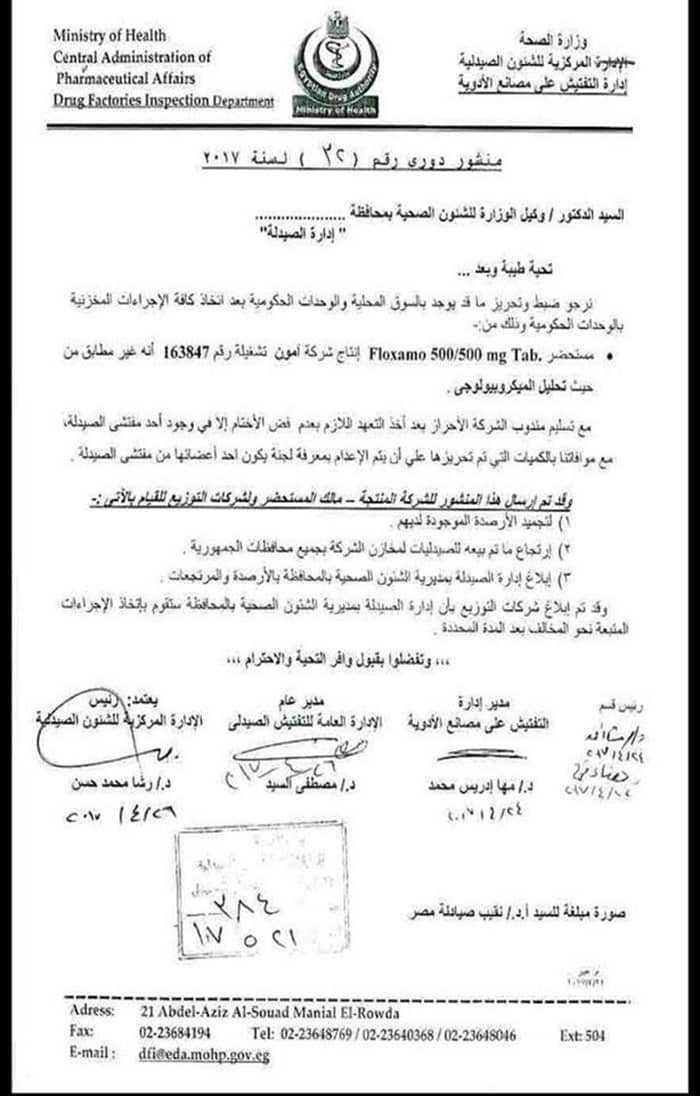 Ministry of Health
Central Administration of
Pharmaceutical Affairs
Drug Factories Inspection Department
Egyptian Drug Authority
Ministry of Health
وزارة الصحة
الإدارة المركزية للشئون الصيدلية
إدارة التفتيش على مصانع الأدوية
منشور دورى رقم ( ٣٢ ) لسنة ٢٠١٧
السيد الدكتور / وكيل الوزارة للشئون الصحية بمحافظة .....................
" إدارة الصيدلة"
تحية طيبة وبعد ...
نرجو ضبط وتحريز ما قد يوجد بالسوق المحلية والوحدات الحكومية بعد اتخاذ كافة الإجراءات المخزنية
بالوحدات الحكومية وذلك من:-
• مستحضر Floxamo 500/500 mg Tab. إنتاج شركة آمون تشغيلة رقم 163847 أنه غير مطابق من
حيث تحليل الميكروبيولوجى .
مع تسليم مندوب الشركة الأحراز بعد أخذ التعهد اللازم بعدم فض الأختام إلا في وجود أحد مفتشى الصيدلة،
مع موافاتنا بالكميات التي تم تحريزها علي أن يتم الإعدام بمعرفة لجنة يكون احد أعضائها من مفتشى الصيدلة .
وقد تم إرسال هذا المنشور للشركة المنتجة – مالك المستحضر ولشركات التوزيع للقيام بالآتى :-
١) لتجميد الأرصدة الموجودة لديهم .
٢) إرتجاع ما تم بيعه للصيدليات لمخازن الشركة بجميع محافظات الجمهورية .
٣) إبلاغ إدارة الصيدلة بمديرية الشئون الصحية بالمحافظة بالأرصدة والمرتجعات .
وقد تم إبلاغ شركات التوزيع بأن إدارة الصيدلة بمديرية الشئون الصحية بالمحافظة ستقوم بإتخاذ الإجراءات
المتبعة نحو المخالف بعد المدة المحددة .
،،، وتفضلوا بقبول وافر التحية والاحترام ،،،
رئيس قسم
مدير إدارة
التفتيش على مصانع الأدوية
د./ مها إدريس محمد
٢٠١٧/٤/٢٤
مدير عام
الإدارة العامة للتفتيش الصيدلى
د./ مصطفى السيد
٢٠١٧/٤/٢٦
يعتمد: رئيس
الإدارة المركزية للشئون الصيدلية
د./ رشا محمد حسن
٢٠١٧/٤/٢٦
٣٨٤
صورة مبلغة للسيد أ.د./ نقيب صيادلة مصر
Adress: 21 Abdel-Aziz Al-Souad Manial El-Rowda
Fax: 02-23684194 Tel: 02-23648769 / 02-23640368 / 02-23648046 Ext: 504
E-mail : dfi@eda.mohp.gov.eg